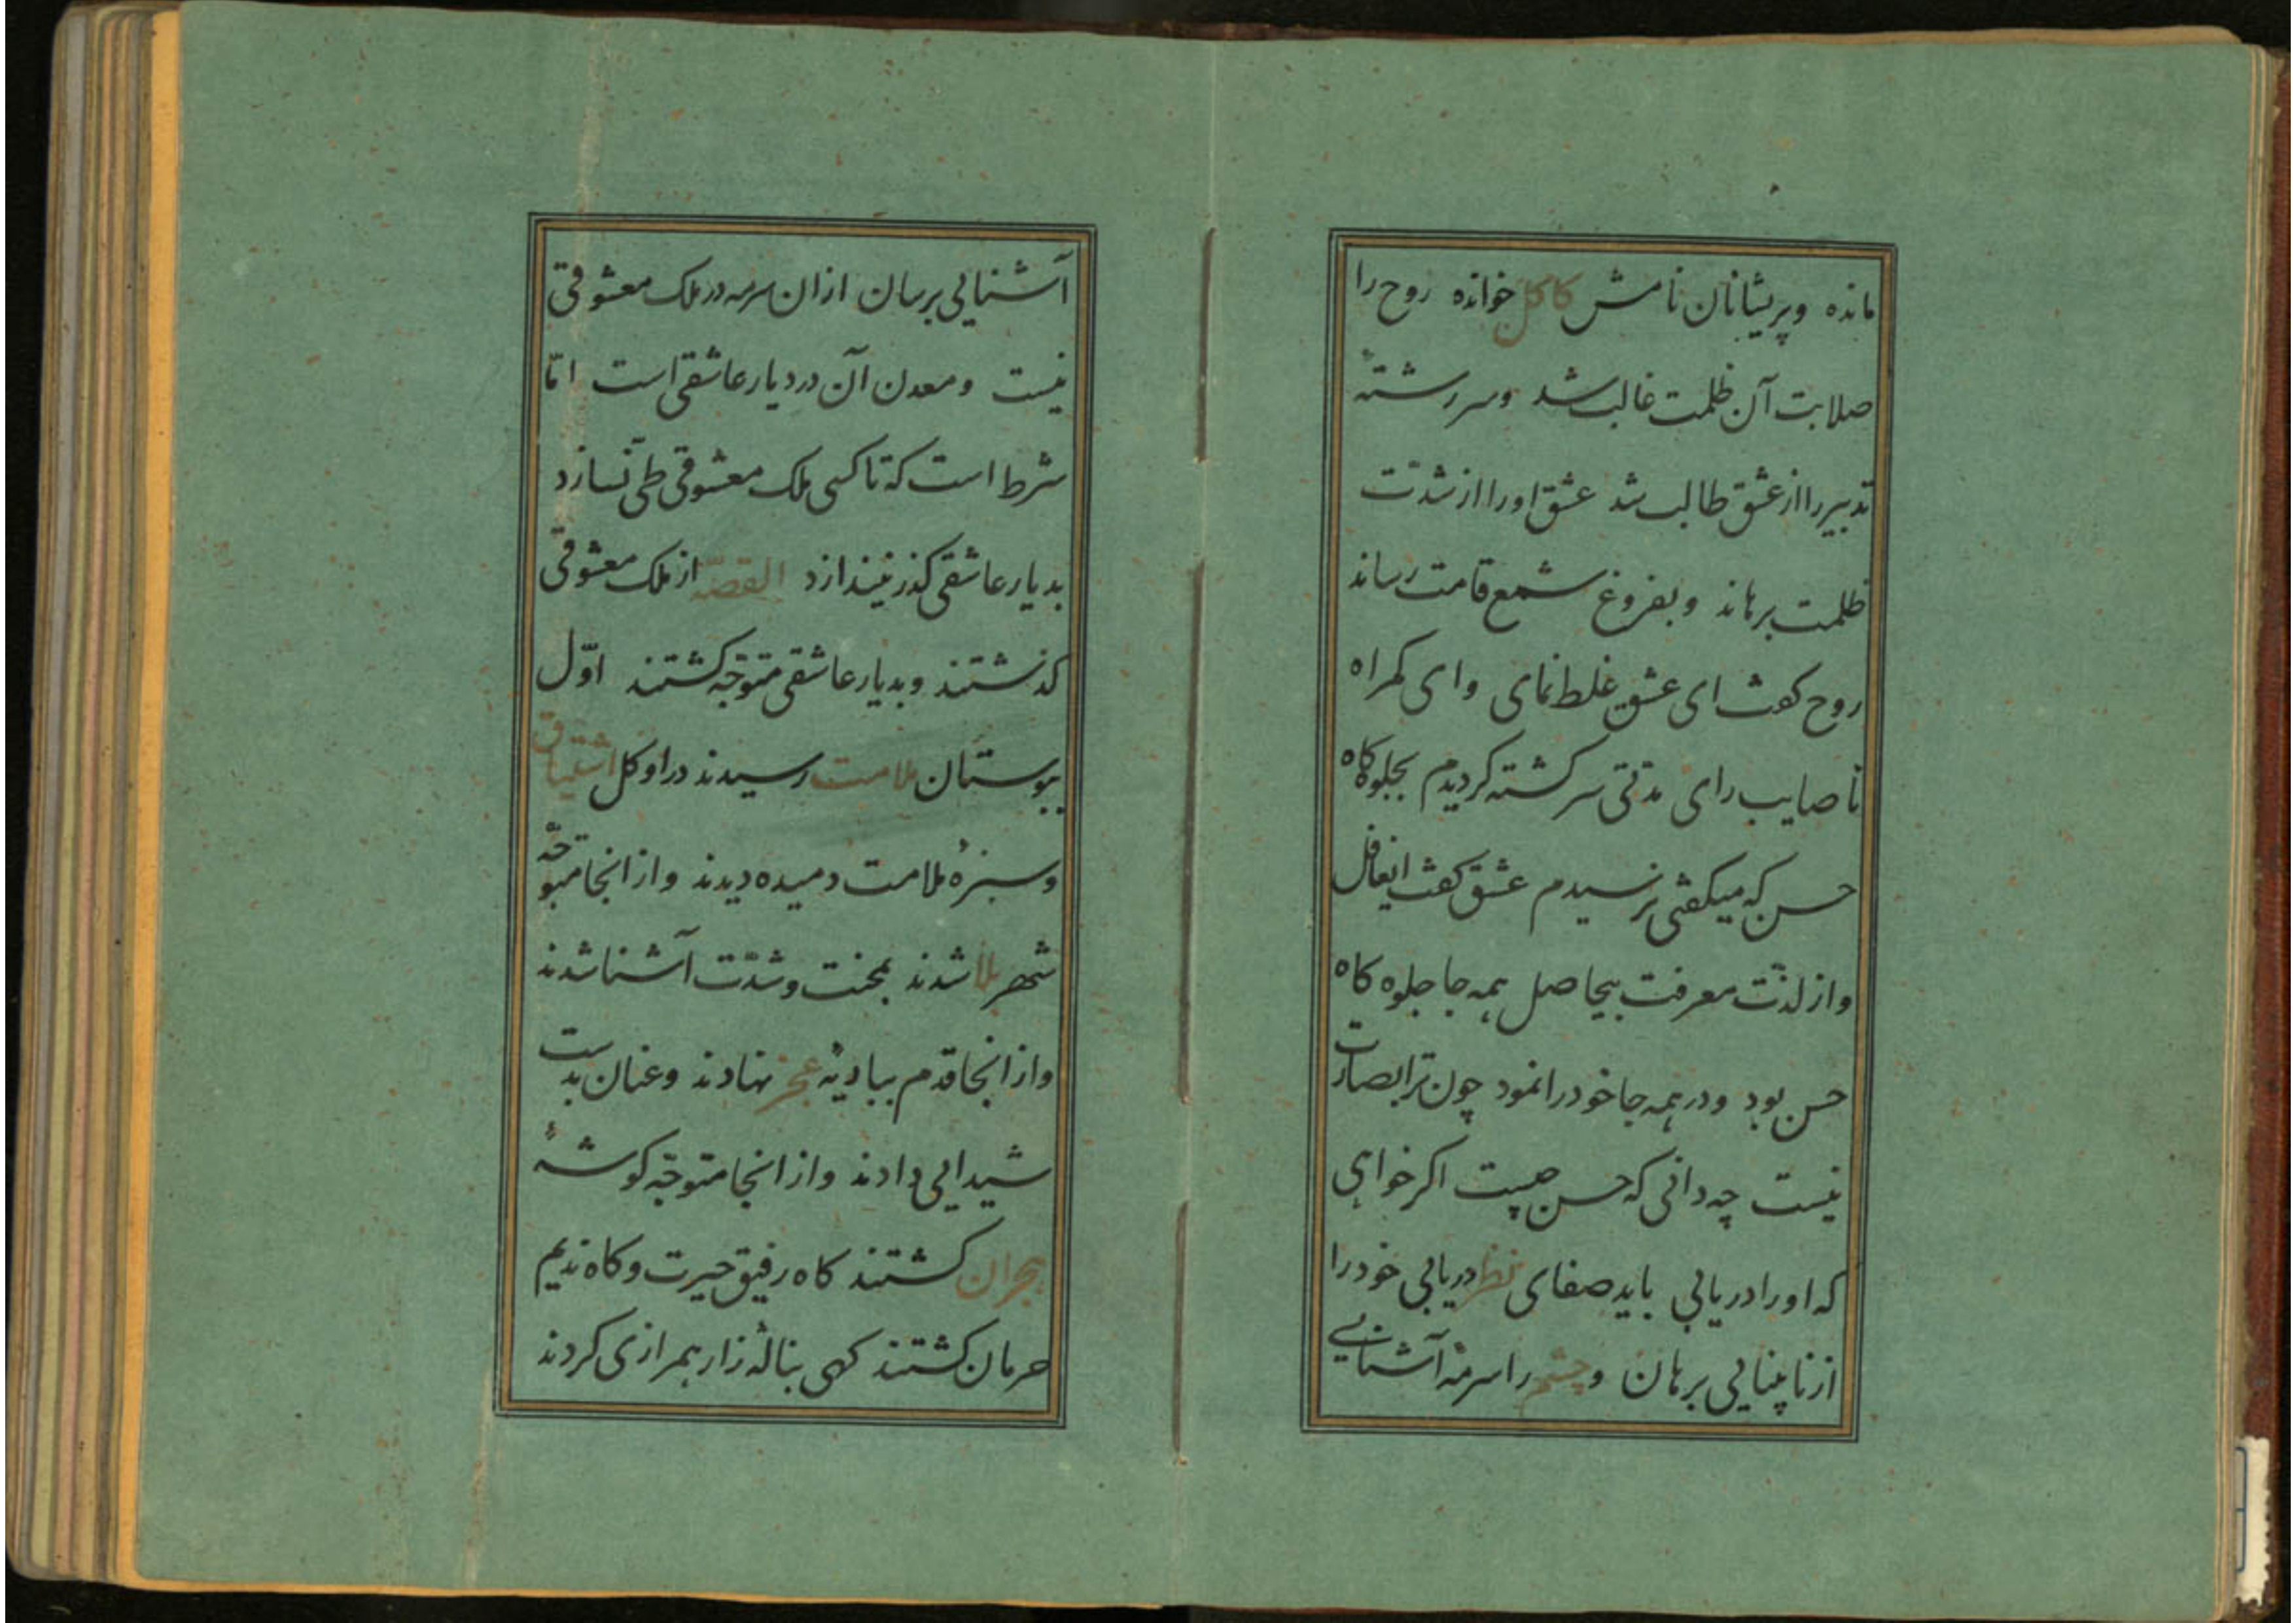 مانده وپریشانان نامش کاکل خوانده روح را
صلابت آن ظلمت غالب شد وسررشتهٔ
تدبیر را از عشق طالب شد عشق اورا از شدّت
ظلمت برهاند وبفروغ شمع قامت رساند
روح کفت ای عشق غلط نمای وای کمراه
ناصایب رای مدّتی سرکشته کردیدم بجلوه کاه
حسن که میکفتی نرسیدم عشق کفت ایغافل
واز لذّت معرفت بیحاصل همه جا جلوه کاه
حسن بود ودر همه جا خودرا نمود چون ترا بصارت
نیست چه دانی که حسن چیست اکر خواهی
که اورا دریابی باید صفای نظر دریابی خودرا
از نابینایی برهان وچشم را سرمهٔ آشنایی
آشنایی برسان ازان سرمه در ملک معشوقی
نیست ومعدن آن در دیار عاشقی است امّا
شرط است که تا کسی ملک معشوقی طی نسازد
بدیار عاشقی کذر نیندازد القصّه از ملک معشوقی
کذشتند وبدیار عاشقی متوجّه کشتند اوّل
ببوستان ملامت رسیدند درو کل اشتیاق
وسبزهٔ ملامت دمیده دیدند واز انجا متوجّه
شهر بلا شدند بمحنت وشدّت آشنا شدند
واز انجا قدم ببادیهٔ عجز نهادند وعنان بدست
شیدایی دادند واز انجا متوجّه کوشهٔ
هجران کشتند کاه رفیق حیرت وکاه ندیم
حرمان کشتند کهی بنالهٔ زار همرازی کردند